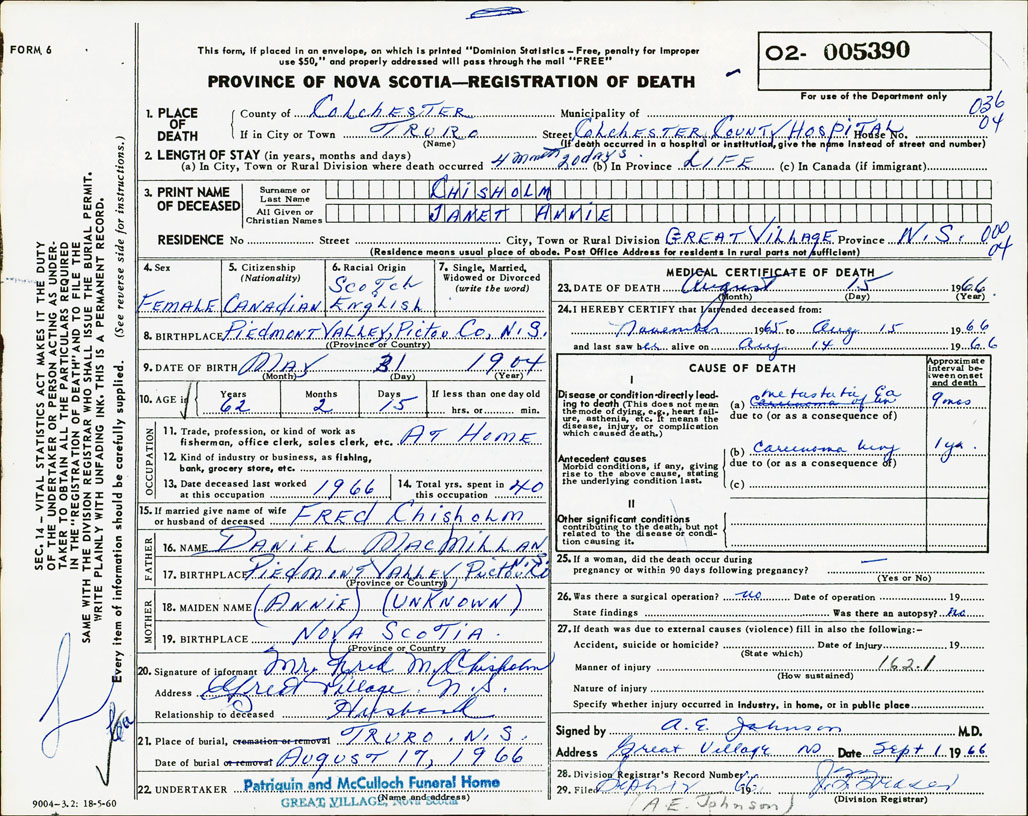 FORM 6
This form, if placed in an envelope, on which is printed "Dominion Statistics – Free, penalty for improper
use $50," and properly addressed will pass through the mail "FREE"
O2- 005390
For use of the Department only
PROVINCE OF NOVA SCOTIA—REGISTRATION OF DEATH
036
04
1. PLACE OF DEATH
County of COLCHESTER Municipality of
If in City or Town TRURO Street COLCHESTER COUNTY HOSPITAL House No.
(Name) (If death occurred in a hospital or institution, give the name instead of street and number)
2. LENGTH OF STAY (in years, months and days)
(a) In City, Town or Rural Division where death occurred 4 months 20 days. (b) In Province LIFE (c) In Canada (if immigrant)
3. PRINT NAME OF DECEASED
Surname or Last Name CHISHOLM
All Given or Christian Names JANET ANNIE
RESIDENCE No Street City, Town or Rural Division GREAT VILLAGE Province N.S. 000
04
(Residence means usual place of abode. Post Office Address for residents in rural parts not sufficient)
4. Sex FEMALE
5. Citizenship (Nationality) CANADIAN
6. Racial Origin SCOTCH ENGLISH
7. Single, Married, Widowed or Divorced (write the word)
8. BIRTHPLACE PIEDMONT VALLEY, PICTOU CO, N.S.
(Province or Country)
9. DATE OF BIRTH MAY 31 1904
(Month) (Day) (Year)
10. AGE in Years 62 Months 2 Days 15 If less than one day old hrs. or min.
OCCUPATION
11. Trade, profession, or kind of work as
fisherman, office clerk, sales clerk, etc. AT HOME
12. Kind of industry or business, as fishing,
bank, grocery store, etc.
13. Date deceased last worked at this occupation 1966
14. Total yrs. spent in this occupation 40
15. If married give name of wife or husband of deceased FRED CHISHOLM
FATHER
16. NAME DANIEL MACMILLAN
17. BIRTHPLACE PIEDMONT VALLEY PICTOU N.S.
(Province or Country)
MOTHER
18. MAIDEN NAME (ANNIE) (UNKNOWN)
19. BIRTHPLACE NOVA SCOTIA.
(Province or Country)
20. Signature of informant Mr. Fred M. Chisholm
Address Great Village. N.S.
Relationship to deceased Husband
21. Place of burial, cremation or removal TRURO. N.S.
Date of burial or removal AUGUST 17, 1966
22. UNDERTAKER Patriquin and McCulloch Funeral Home
(Name and address)
GREAT VILLAGE, Nova Scotia
MEDICAL CERTIFICATE OF DEATH
23. DATE OF DEATH August 15 1966
(Month) (Day) (Year)
24. I HEREBY CERTIFY that I attended deceased from:
November 1965 to Aug. 15 1966
and last saw her alive on Aug. 14 1966
CAUSE OF DEATH
Approximate interval between onset and death
I
Disease or condition directly leading to death (This does not mean the mode of dying, e.g., heart failure, asthenia, etc. It means the disease, injury, or complication which caused death.)
(a) metastatic Ca 9 mos
Carcinoma of
due to (or as a consequence of)
Antecedent causes
Morbid conditions, if any, giving rise to the above cause, stating the underlying condition last.
(b) Carcinoma lung 1 yr.
due to (or as a consequence of)
(c)
II
Other significant conditions
contributing to the death, but not related to the disease or condition causing it.
25. If a woman, did the death occur during
pregnancy or within 90 days following pregnancy? —
(Yes or No)
26. Was there a surgical operation? no Date of operation 19
State findings Was there an autopsy? no
27. If death was due to external causes (violence) fill in also the following:–
Accident, suicide or homicide? Date of injury 19
(State which)
Manner of injury 162.1
(How sustained)
Nature of injury
Specify whether injury occurred in Industry, in home, or in public place
Signed by A. E. Johnson M.D.
Address Great Village NS Date Sept 1 1966
28. Division Registrar's Record Number
29. Filed 66
(Division Registrar)
(A.E. Johnson)
SEC. 14 – VITAL STATISTICS ACT MAKES IT THE DUTY
OF THE UNDERTAKER OR PERSON ACTING AS UNDER-
TAKER TO OBTAIN ALL THE PARTICULARS REQUIRED
IN THE "REGISTRATION OF DEATH" AND TO FILE THE
SAME WITH THE DIVISION REGISTRAR WHO SHALL ISSUE THE BURIAL PERMIT.
WRITE PLAINLY WITH UNFADING INK. THIS IS A PERMANENT RECORD.
Every item of information should be carefully supplied. (See reverse side for instructions.)
9004–3.2: 18-5-60